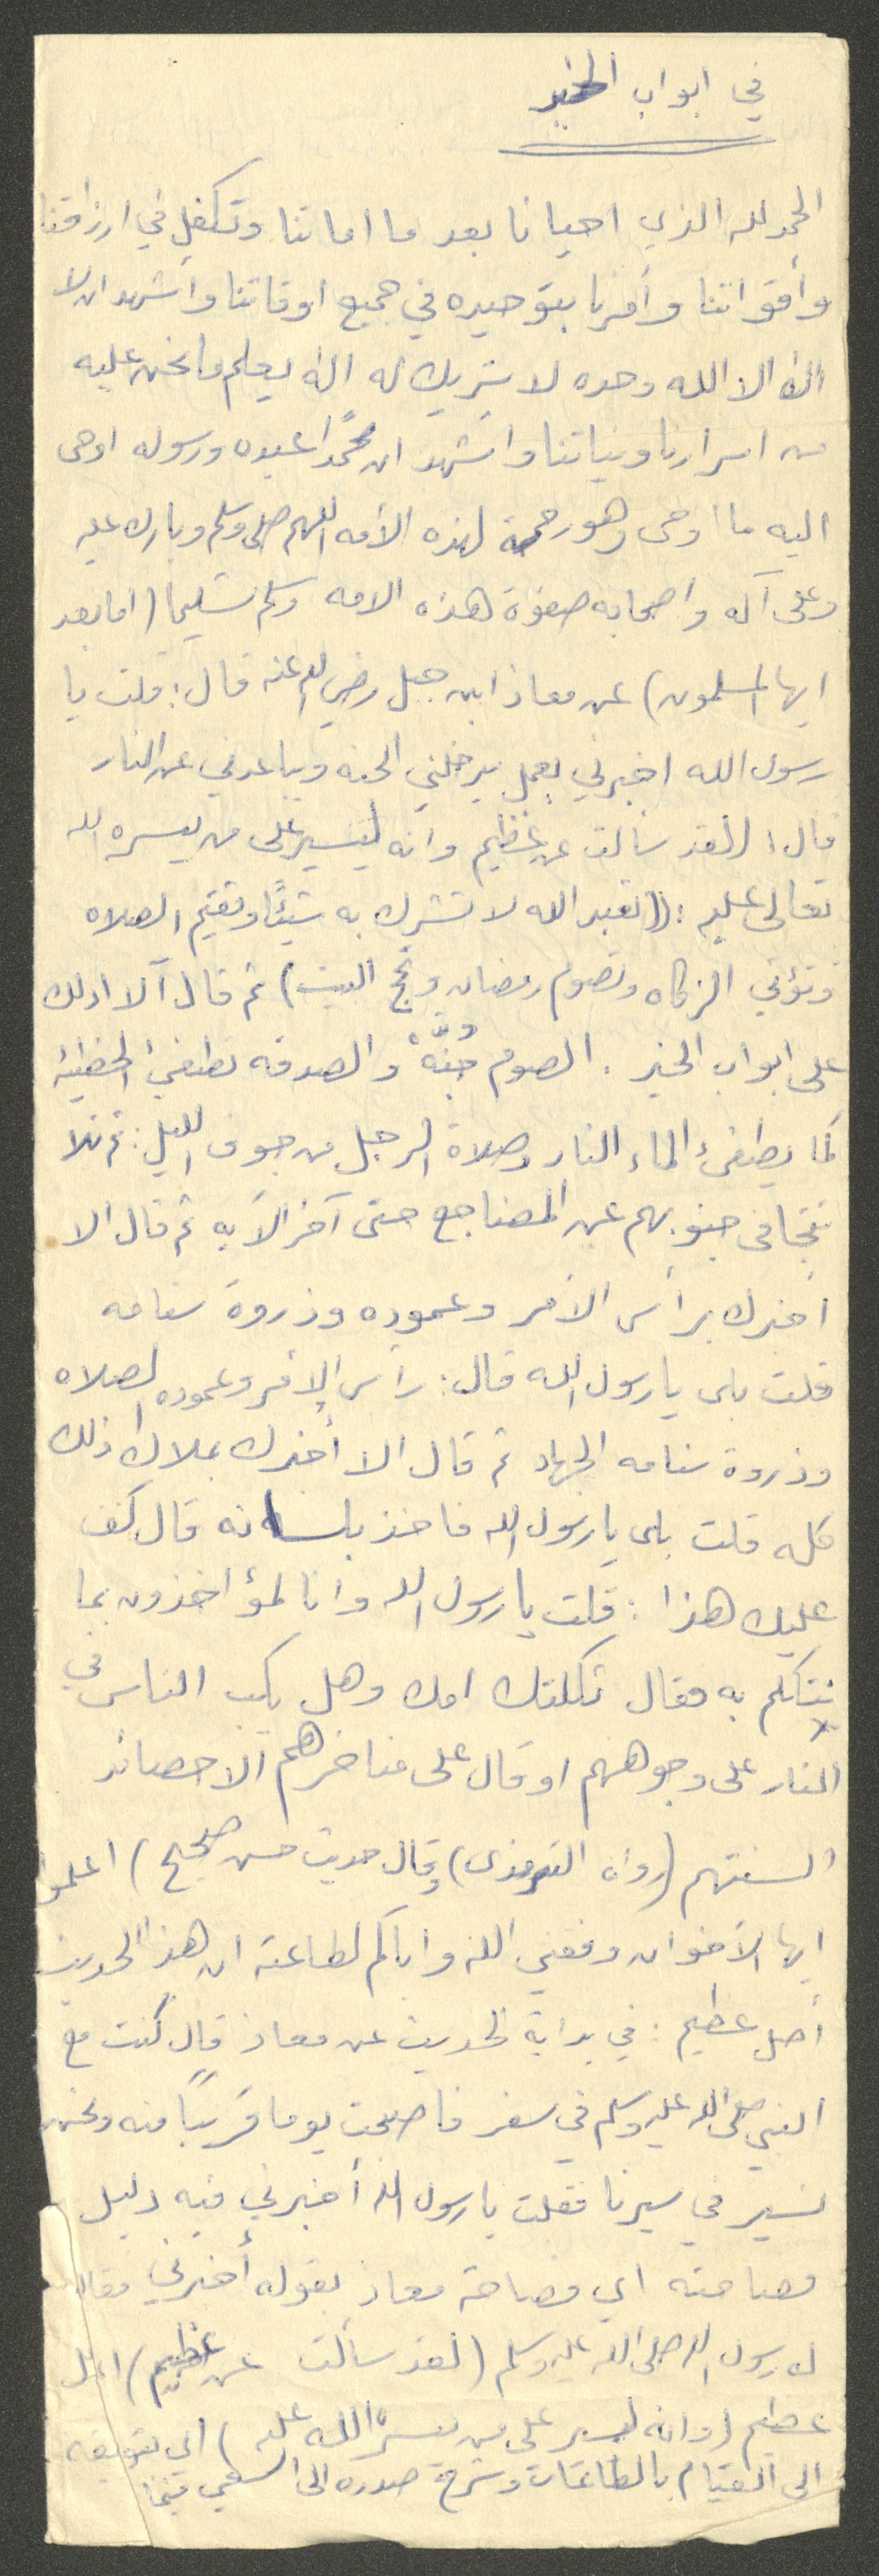 في ابواب الخير
الحمد لله الذي احيانا بعد ما اماتنا وتكفل في ارزاقنا
وأقواتنا وأمرنا بتوحيده في جميع اوقاتنا وأشهد ان لا
اله الا الله وحده لا شريك له اله يعلم ما نحن عليه
من اسرارنا ونياتنا واشهد ان محمدًا عبده ورسوله اوحى
اليه ما اوحى وهو رحمة لهذه الأمه اللهم صلى وسلم وبارك عليه
وعلى آله واصحابه صفوة هذه الامه وسلم تسليما (اما بعد
ايها المسلمون) عن معاذ ابن جبل رضي الله عنه قال: قلت يا
رسول الله اخبرني بعمل يدخلني الجنه ويباعدني عن النار
قال: لقد سألت عن عظيم وانه ليسير على من يسره الله
تعالى عليه: ((تعبد الله لا تشرك به شيئًا وتقيم الصلاه
وتؤتي الزكاه وتصوم رمضان وتحج البيت) ثم قال آلا ادلك
على ابواب الخير. الصوم جُنَّةٌ والصدقه تطفئُ الخطيئه
كما يطفئ الماء النار وصلاة الرجل من جوف الليل: ثم تلا
تتجافى جنوبهم عن المضاجع حتى آخر الآيه ثم قال الا
أخبرك برأس الأمر وعموده وذروة سنامه
قلت بلى يا رسول الله قال: رأس الأمر وعموده الصلاه
وذروة سنامه الجهاد ثم قال الا أخبرك بملاك ذلك
كله قلت بلى يا رسول الله فاخذ بلسانه قال كف
عليك هذا: قلت يا رسول الله وانا لمؤاخذون بما
نتكلم به فقال ثكلتك امك وهل يكب الناس في
النار على وجوههم او قال على مناخرهم الا حصائد
السنتهم (رواه الترمذى) وقال حديث حسن صحيح) اعلموا
ايها الأخوان وفقني الله واياكم لطاعته ان هذا الحديث
أصل عظيم: في بداية الحديث عن معاذ قال كنت مع
النبي صلى الله عليه وسلم في سفر فاصبحت يوما قريبًا منه ونحن
نسير في سيرنا فقلت يا رسول الله أخبرني فيه دليل
فصاحته اي فصاحة معاذ بقوله أخبرني فقال
له رسول الله صلى الله عليه وسلم (لقد سألت عن عظيم)
عظيم (وانه ليسير على من يسرهُ الله عليه) اي بتوفيقه
الى القيام بالطاعات وشرح صدره الى السعي فيما